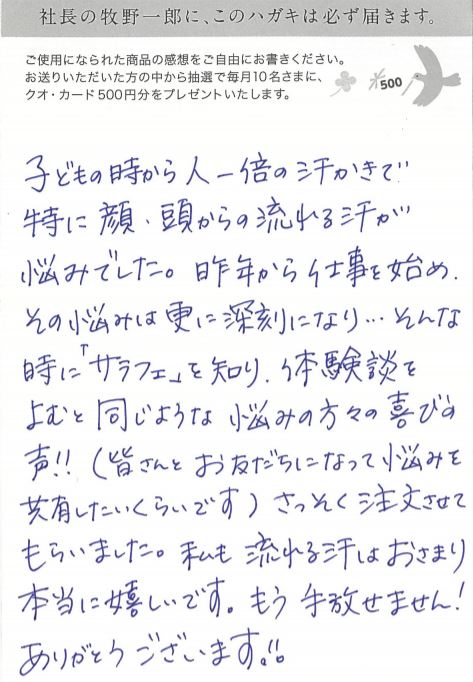 社長の牧野一郎に、このハガキは必ず届きます。
ご使用になられた商品の感想をご自由にお書きください。
お送りいただいた方の中から抽選で毎月10名さまに、
クオ・カード500円分をプレゼントいたします。
500
子どもの時から人一倍の汗かきで
特に顔、頭からの流れる汗が
悩みでした。昨年から仕事を始め、
その悩みは更に深刻になり…そんな
時に「サラフェ」を知り、体験談を
よむと同じような悩みの方々の喜びの
声!!(皆さんとお友だちになって悩みを
共有したいくらいです)さっそく注文させて
もらいました。私も流れる汗はおさまり
本当に嬉しいです。もう手放せません!
ありがとうございます。!!